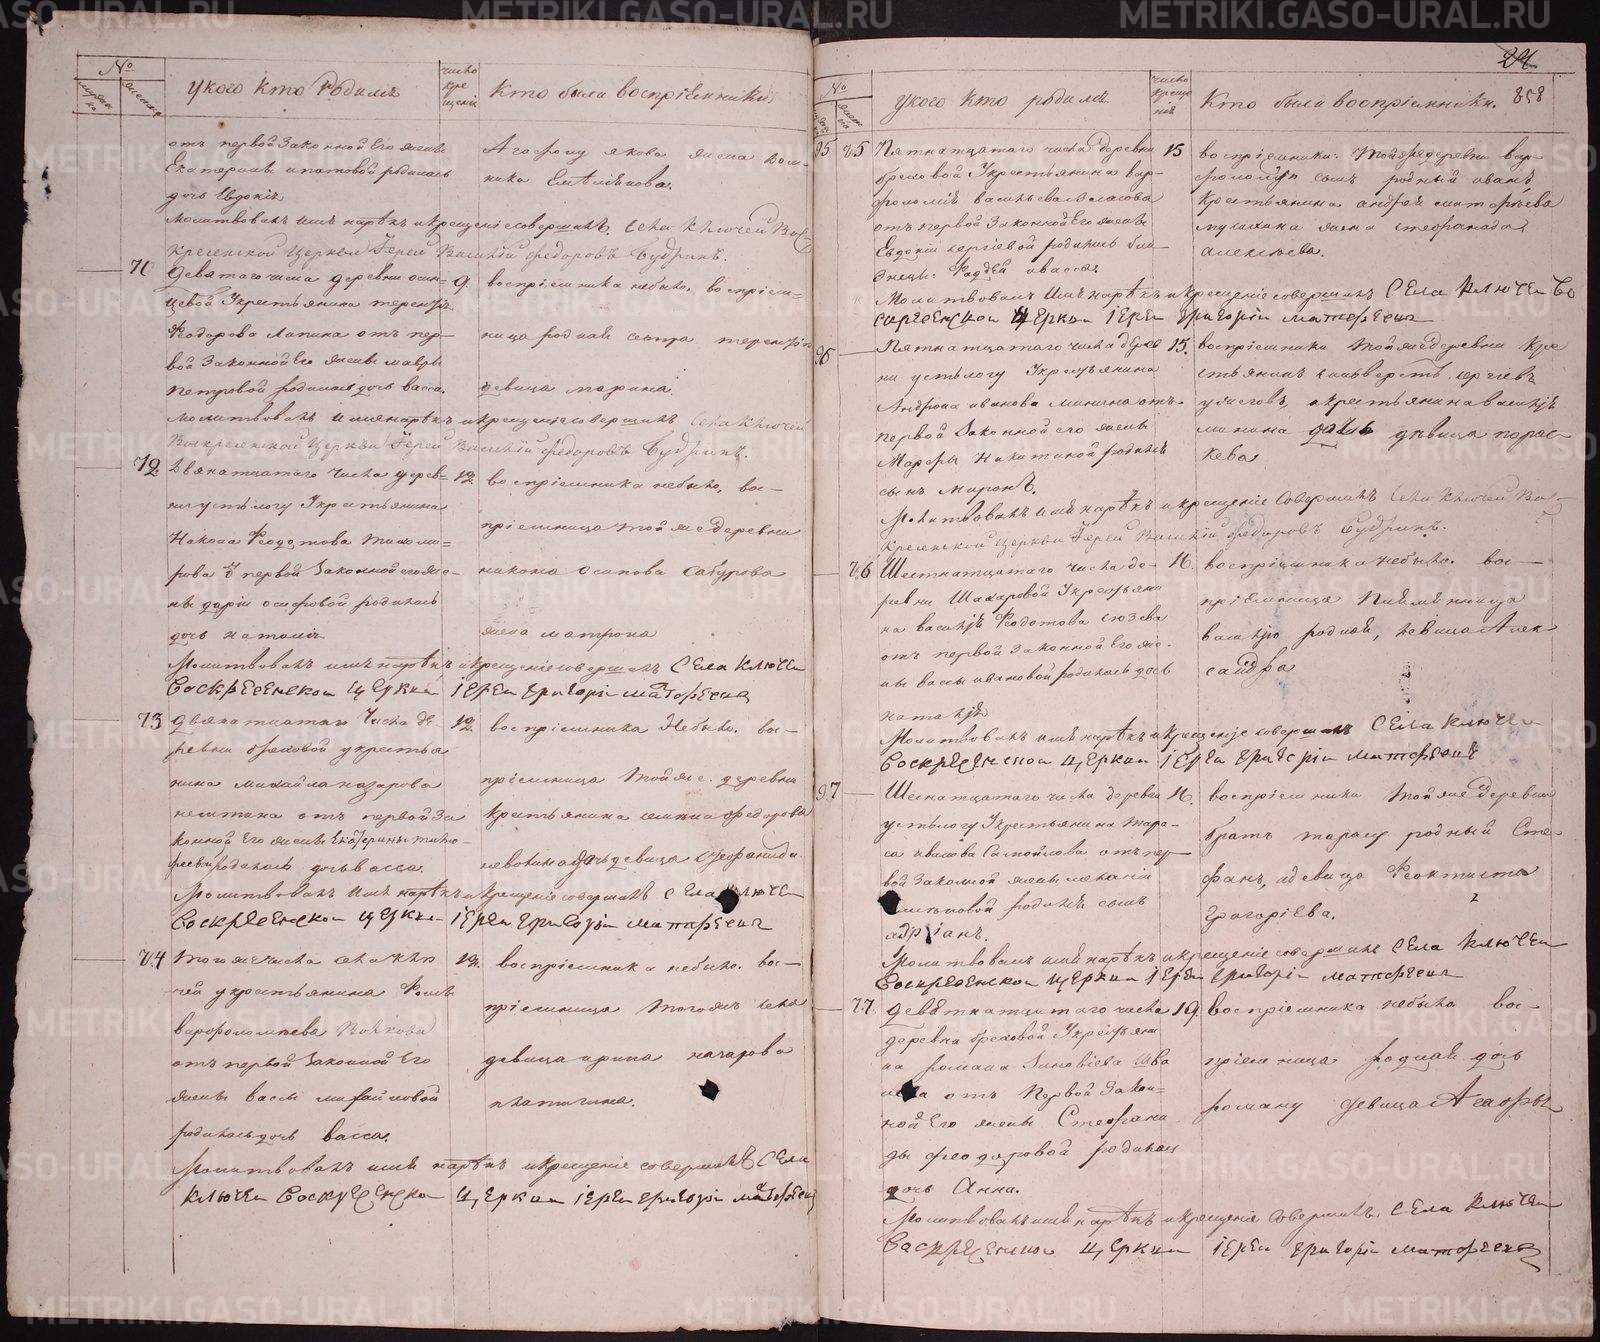 №
у кого кто Родился
число крещения
Кто были восприемники
отъ первой Законной Его жены
Екатерины родилась
дочь Евдокія
Агафону якова жена
Емеліянова.
молитвовалъ имя нарѣкъ и крещеніе совершилъ Села Ключей Вос-
кресенской Церкви Іерей Василій Федоровъ Будринъ.
70
Девятаго числа деревни
у крестьянина терентія
Федорова Лапина отъ пер-
вой Законной Его жены мавры
петровой родилась дочь васса.
9.
воспріемника небыло, воспріем=
ница родная сестра терентію
девица марина
молитвовалъ и имя нарѣкъ и крещеніе совершилъ Села Ключей
Воскресенской Церкви Іерей Василій Федоровъ Будринъ.
72
двенатцатаго числа дерев-
ни устьлогу У крестьянина
Федотова
первой Законной его же-
ны дарьи осиповой родилась
дочь наталія
12.
воспріемника небыло, вос-
пріемница тойже деревни
никона осипова Сабурова
жена матрона
Молитвовалъ имя нарѣкъ и крещеніе совершилъ Села Ключей
Воскресенской Церкви іерей григорій матфеевъ
73
двенатцатаго Числа де-
ревни бреховой у крестья
нина михайла назарова
отъ первой За
конной Его жены Екатерины
родилась дочь васса.
12.
воспріемника Небыло. вос-
пріемница тойже деревни
крестьянина федорова
дочь девица Стефанида
Молитвовалъ имя нарѣкъ и крещеніе совершилъ Села Ключей
Воскресенской церкви іерей григорій матфеевъ
74
тогоже числа села клю
чей у крестьянина Фомы
варфоломеева Волкова
отъ первой Законной Его
жены вассы михайловой
родилась дочь васса.
12.
воспріемника небыло. вос-
пріемница тогожъ села
девица ирина назарова
платигина.
Молитвовалъ имя нарѣкъ и крещеніе совершилъ Села
Ключей Воскресенской Церкви іерей григорій матфеевъ
24
№
у кого кто родился
число крещенія
Кто были воспріемники.
858
95
75
Пятнатцатаго числа деревни
бреховой У крестьянина вар-
фоломея васильева Власова
отъ первой Законной Его жены
Евдокіи сергіевой родились бли-
знецы: Фаддей и васса.
15
воспріемники: тойже деревни вар-
фоломею сынъ родный иванъ
Крестьянина андрея матфѣева
жена стефанида
алексѣева.
Молитвовалъ имя нарѣкъ и крещеніе совершилъ Села Ключей Во
скресенской церкви іерей григорій матфеевъ
96
Пятнатцатаго числа дерев
ни устьлогу У крестьянина
Андрона иванова минина отъ
первой Законной его жены
Марфы Никитиной родился
сынъ миронъ.
15.
воспріемники тойже деревни кре
стьянинъ сергіевъ
и крестьянина василія
минина дочь дѣвица парас
кева
Молитвовалъ имя нарѣкъ и крещеніе совершилъ Села Ключей Вос-
кресенской Церкви Іерей Василій Федоровъ Будринъ.
76
Шестнатцатаго числа де-
ревни Шахаровой У крестьяни
на василія Федотова сюзева
отъ первой Законной Его же-
ны вассы ивановой родилась дочь
наталія
16.
воспріемника небыло. вос-
пріемница племянница
василію родная, девица Алек
сандра
Молитвовалъ имя нарѣкъ и крещеніе совершилъ Села Ключей
Воскресенской церкви іерей григорій матфеевъ
97
Шестнатцатаго числа деревни
устьлогу У крестьянина тара-
са иванова Самойлова отъ пер-
вой Законной жены меланіи
родился сынъ
адріанъ.
16.
воспріемники тойже деревни
братъ тарасу родный Сте
фанъ, и девица Феоктиста
Григоріева.
Молитвовалъ имя нарѣкъ и крещеніе совершилъ Села Ключей
Воскресенской церкви іерей григорій матфеевъ
77
девятнатцатаго числа
деревни бреховой У крестьяни
на романа Зиновіева
отъ первой Закон-
ной Его жены Стефани
ды феодоровой родилась
дочь Анна.
19.
воспріемника небыло вос-
пріемница родная дочь
роману девица
Молитвовалъ имя нарѣкъ и крещеніе совершилъ Села Ключей
Воскресенской церкви іерей григорій матфеевъ
METRIKI.GASO-URAL.RU